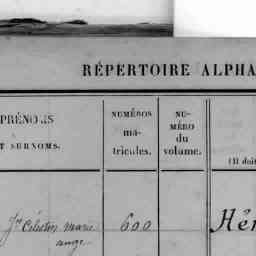 RÉPERTOIRE ALPHA
PRÉNOMS
ET SURNOMS.
NUMÉROS
ma-
tricules.
NU-
MÉRO
du
volume.
(Il doit
Jn Célestin marie
ange
600
Hér